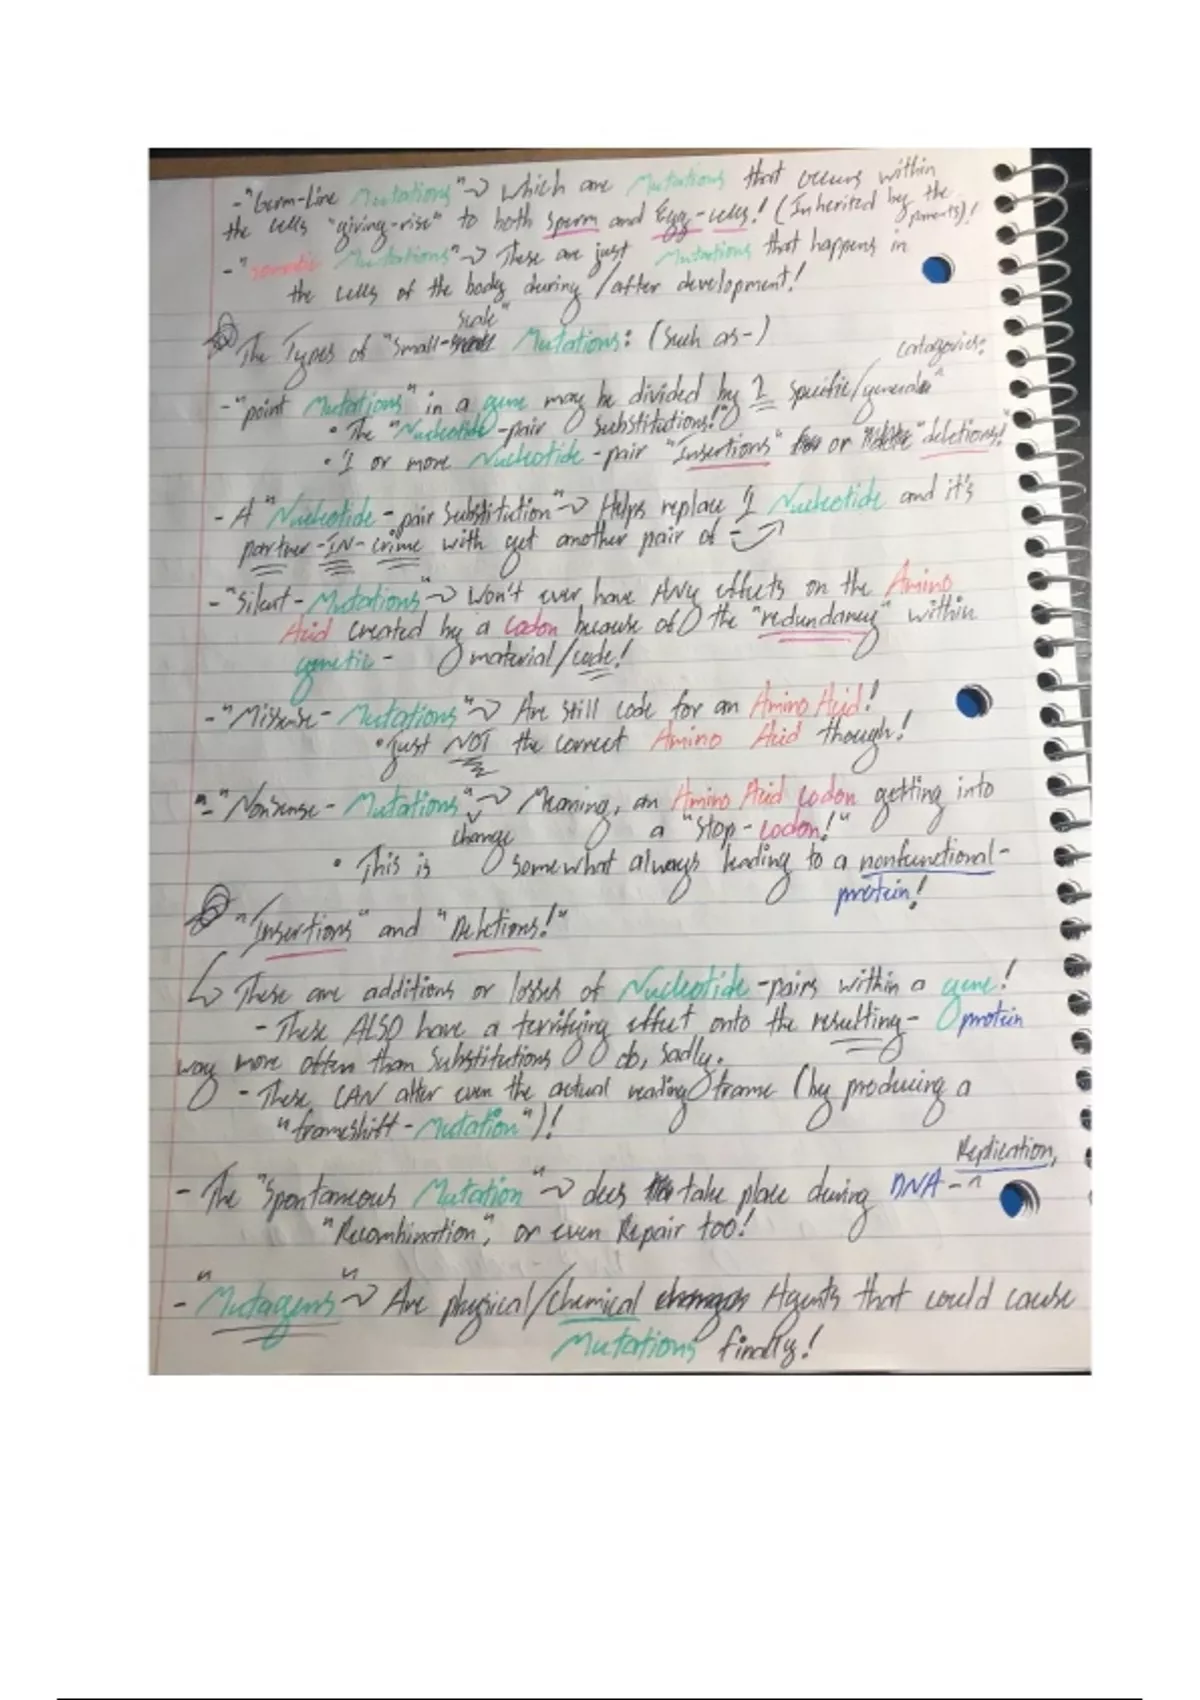 - "Germ-Line Mutations" → which are Mutations that occurs within
the cells "giving-rise" to both sperm and Egg-cells! (Inherited by the parents)!
- "somatic Mutations" → These are just Mutations that happens in
the cells of the body during/after development!
The Types of "Small-scale" Mutations: (such as-)
- "point Mutations" in a gene may be divided by 2 specific/general" catagories:
• The "Nucleotide-pair substitutions!"
• 1 or more Nucleotide-pair "Insertions" or "deletions!"
- A "Nucleotide-pair Substitution" → Helps replace 1 Nucleotide and it's
partner-IN-crime with yet another pair of -
- "Silent-Mutations" → Won't ever have ANy effects on the Amino
Acid created by a codon because of the "redundancy" within
genetic - material/code!
- "Missense-Mutations" → Are still code for an Amino Acid!
• Just NOT the correct Amino Acid though!
- "Nonsense-Mutations" → Meaning, an Amino Acid codon getting into
a "Stop-codon!"
• This is change somewhat always leading to a nonfunctional-
protein!
"Insertions" and "Deletions!"
These are additions or losses of Nucleotide-pairs within a gene!
- These ALSO have a terrifying effect onto the resulting- protein
way more often than Substitutions do, sadly.
- These CAN alter even the actual reading frame (by producing a
"frameshift-Mutation")!
- The "Spontaneous Mutation" → does take place during DNA- Replication,
"Recombination", or even Repair too!
- "Mutagens" → Are physical/chemical Agents that could cause
Mutations finally!